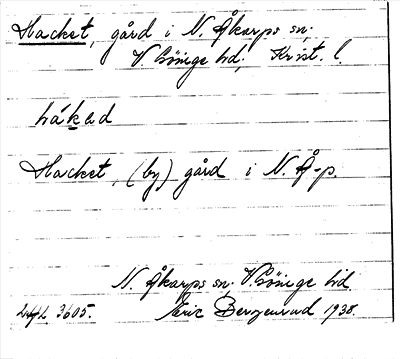 Hacket, gård i N. Åkarps sn.
V Göinge hd; Krist. l
håkəd
Hacket, (by) gård i N. Å-p.
N. Åkarps sn. V. Göinge hd.
3605. Eric Bergenrud 1938.